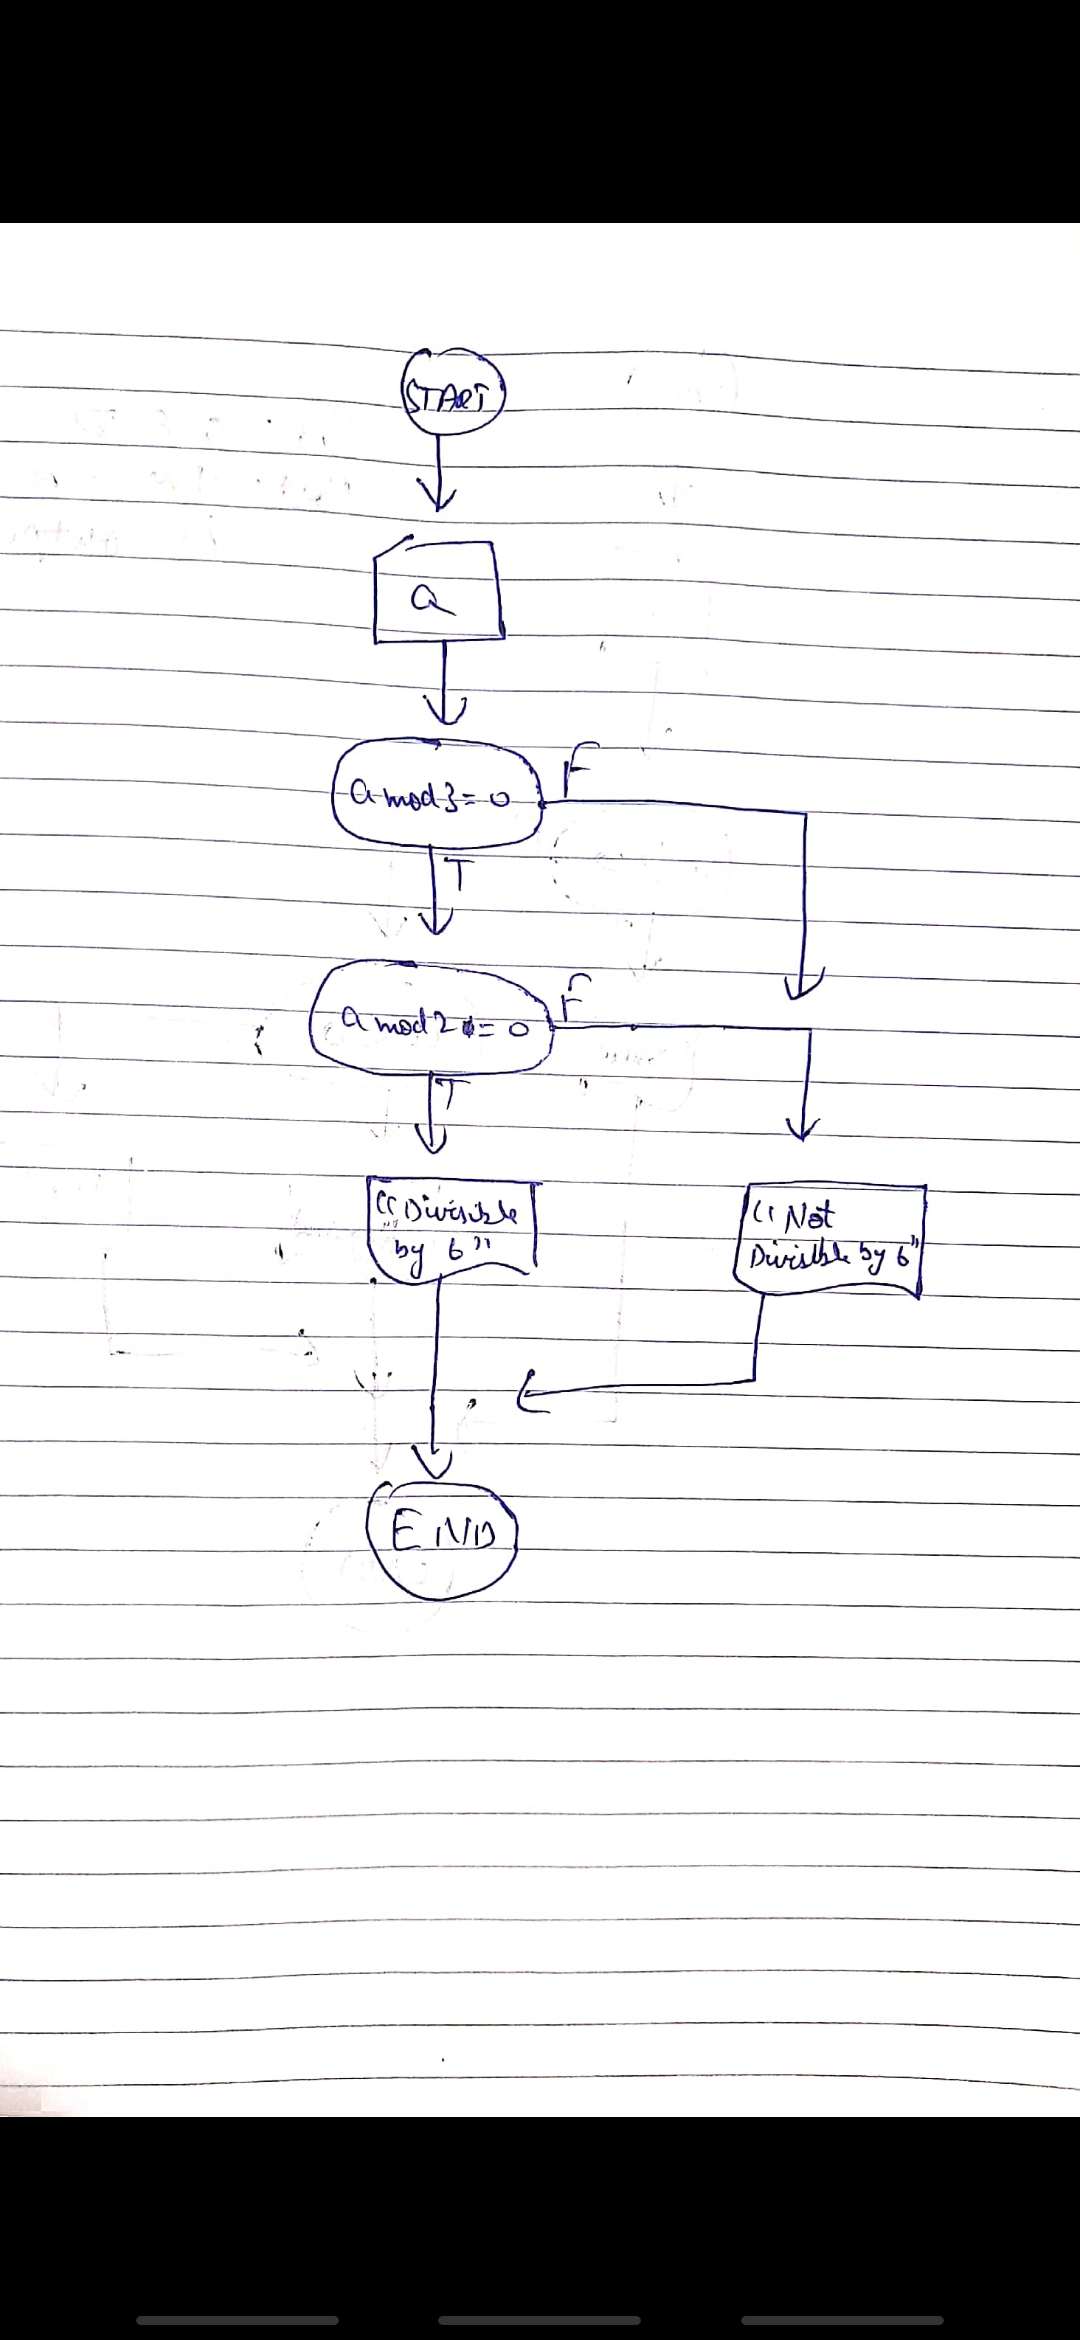 START
a
a mod 3 = 0
F
T
a mod 2 = 0
F
T
"Divisible
by 6"
"Not
Divisible by 6"
END